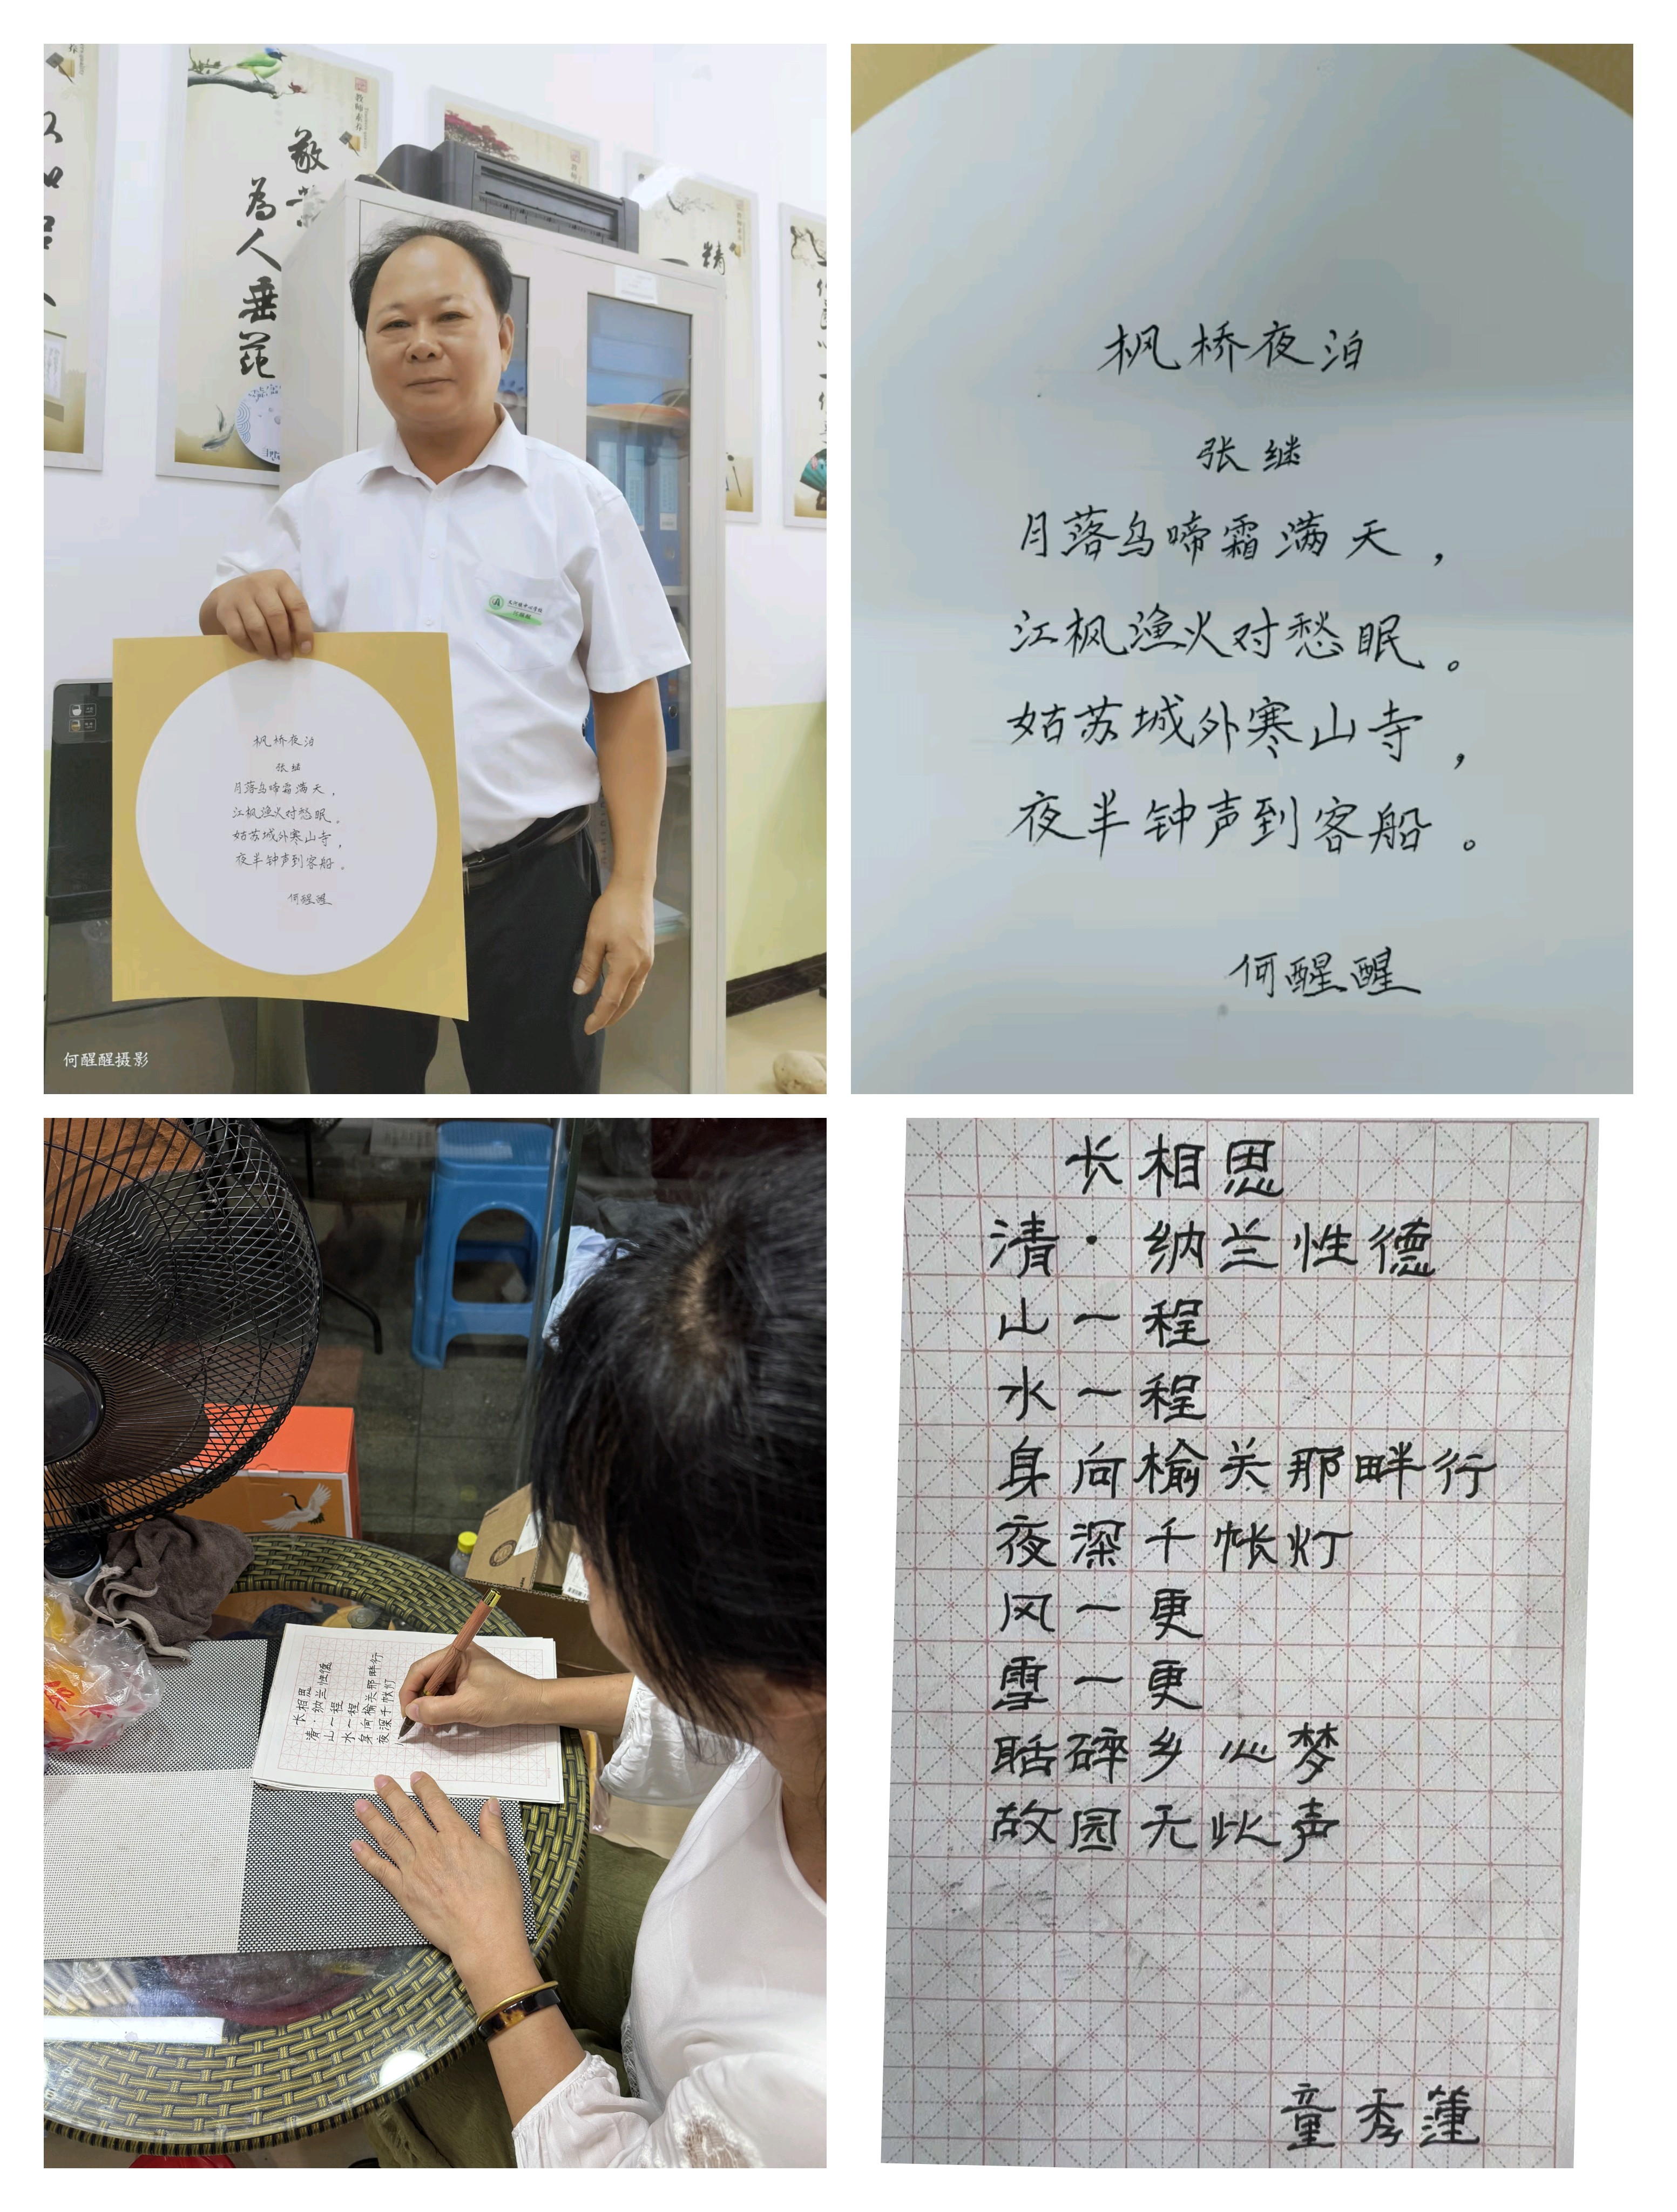 教师素养
敬业
为人垂范
教师素养
精
枫桥夜泊
张继
月落乌啼霜满天，
江枫渔火对愁眠。
姑苏城外寒山寺，
夜半钟声到客船。
何醒醒
何醒醒摄影
枫桥夜泊
张继
月落乌啼霜满天，
江枫渔火对愁眠。
姑苏城外寒山寺，
夜半钟声到客船。
何醒醒
长相思
清·纳兰性德
山一程
水一程
身向榆关那畔行
夜深千帐灯
长相思
清·纳兰性德
山一程
水一程
身向榆关那畔行
夜深千帐灯
风一更
雪一更
聒碎乡心梦
故园无此声
童秀莲